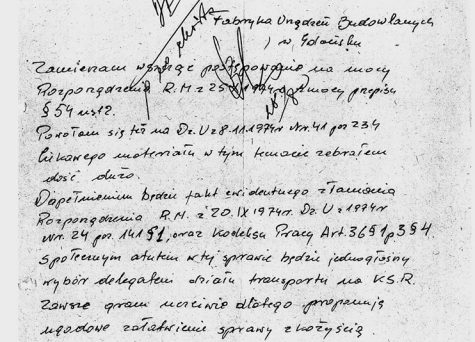 Fabryka Urządzeń Budowlanych
w Gdańsku
Zamierzam wszcząć postępowanie na mocy
Rozporządzenia R.M z 25 1974r z mocy przepisu
§ 54 ust 2.
Powołam się też na Dz. U z 8.11.1974r Nr. 41 poz 234
Ciekawego materiału w tym temacie zebrałem
dość dużo.
Dopełnieniem będzie fakt ewidentnego złamania
Rozporządzenia R.M. z 20.IX 1974r. Dz. U z 1974r
Nr. 24 poz. 141 § 1, oraz Kodeksu Pracy Art. 36 § 1 p 3 § 4
Społecznym atutem w tej sprawie będzie jednogłośny
wybór delegatem działu transportu na K.S.R.
Zawsze gram uczciwie dlatego proponuję
ugodowe załatwienie sprawy z korzyścią.